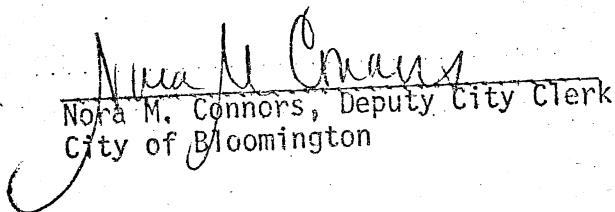 Nora M Connors
Nora M. Connors, Deputy City Clerk
City of Bloomington